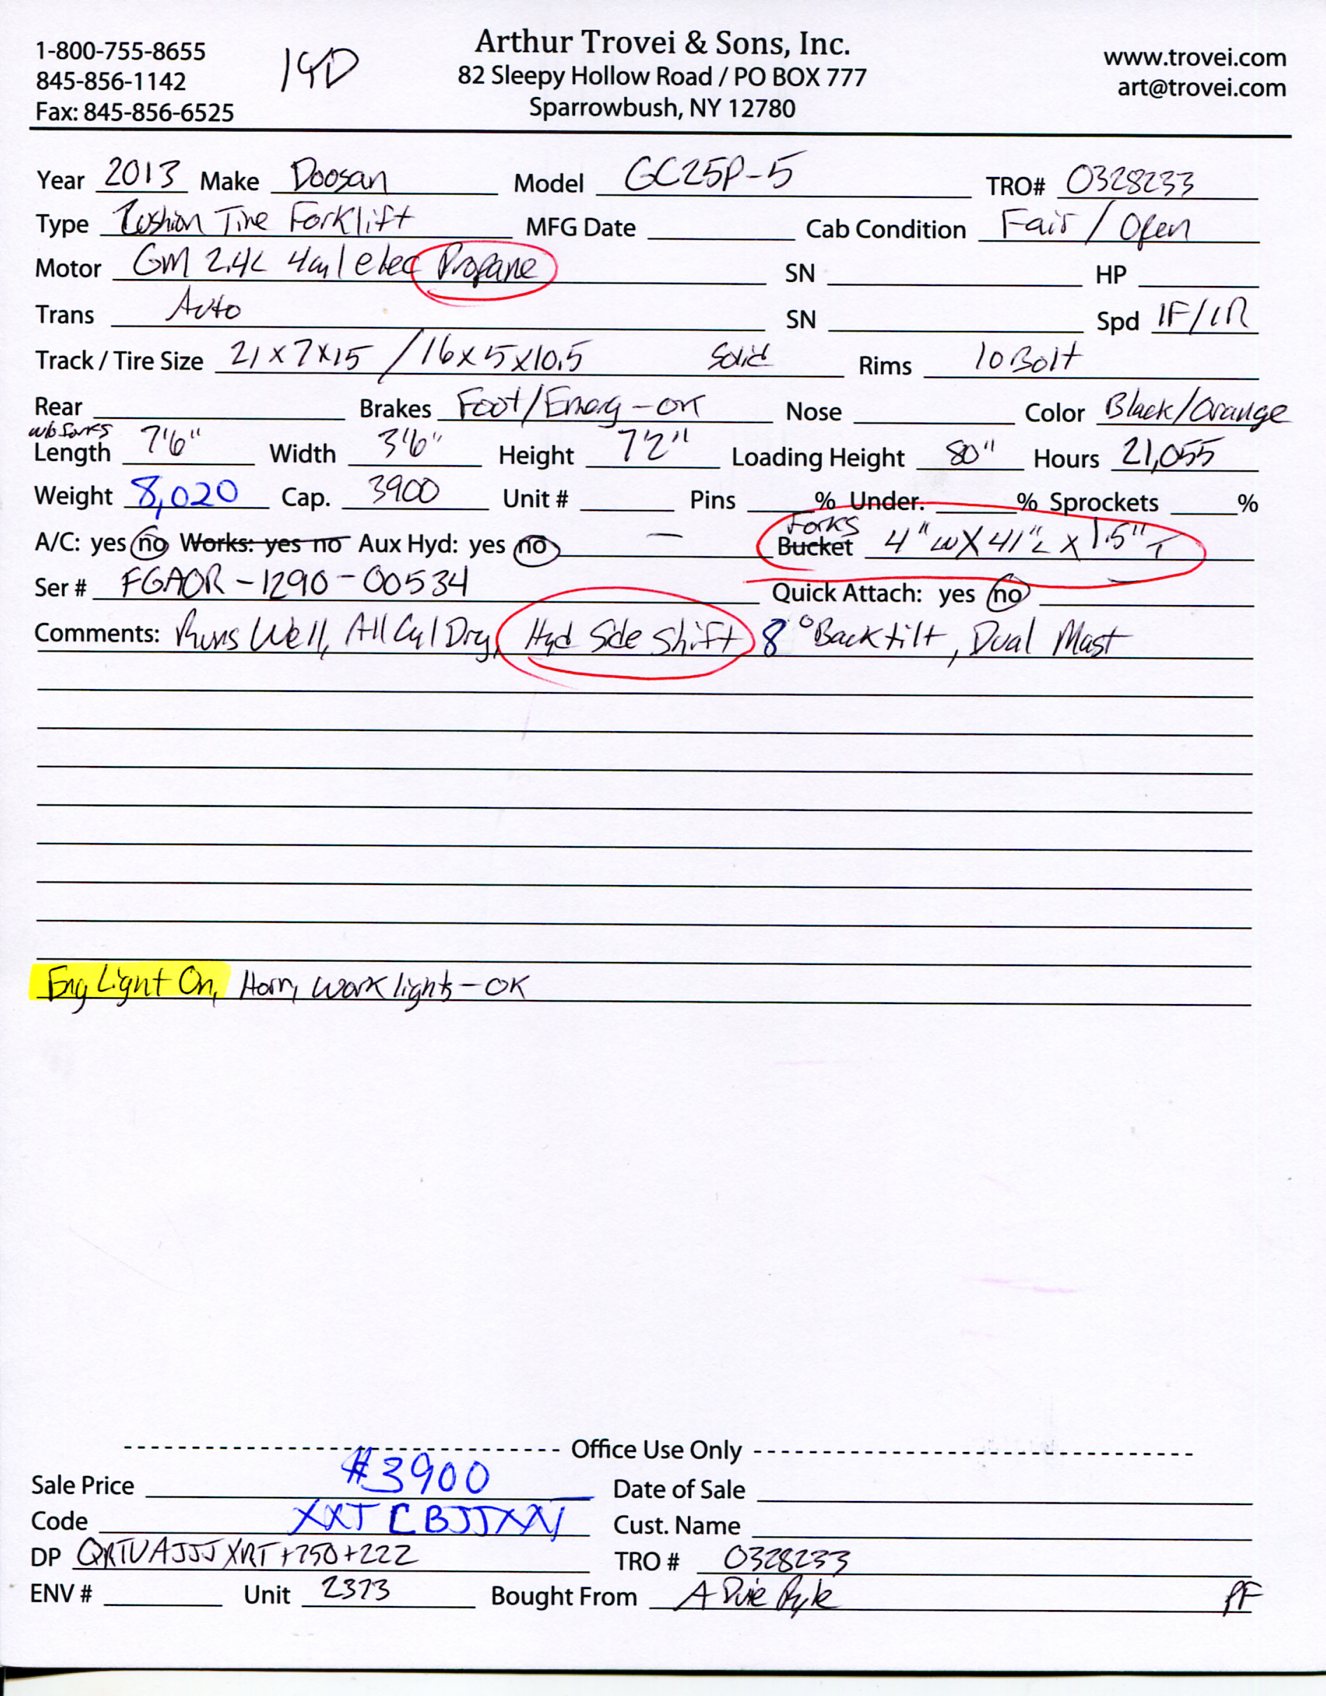 Arthur Trovei & Sons, Inc.
1-800-755-8655
845-856-1142
Fax: 845-856-6525
82 Sleepy Hollow Road / PO BOX 777
Sparrowbush, NY 12780
www.trovei.com
art@trovei.com
Year 2013 Make Doosan Model GC25P-5 TRO# 0328233
Type Cushion Tire Forklift MFG Date Cab Condition Fair / Open
Motor GM 2.4L 4cyl elec Propane SN HP
Trans Auto SN Spd 1F/1R
Track / Tire Size 21x7x15 / 16x5x10.5 Solid Rims 10 Bolt
Rear Brakes Foot/Emerg-OK Nose Color Black/Orange
w/o forks
Length 7'6" Width 3'6" Height 7'2" Loading Height 80" Hours 21,055
Weight 8,020 Cap. 3900 Unit # Pins % Under. % Sprockets %
A/C: yes no Works: yes no Aux Hyd: yes no — Forks Bucket 4"W X 41"L X 1.5"T
Ser # FGAOR-1290-00534 Quick Attach: yes no
Comments: Runs Well, All Cyl Dry, Hyd Side Shift 8° Back tilt, Dual Mast
Eng Light On, Horn, work lights-OK
Office Use Only
Sale Price $3900 Date of Sale
Code XXTCBJJXXV Cust. Name
DP QRTVAJJJXRT+750+222 TRO # 0328233
ENV # Unit 2373 Bought From A PF